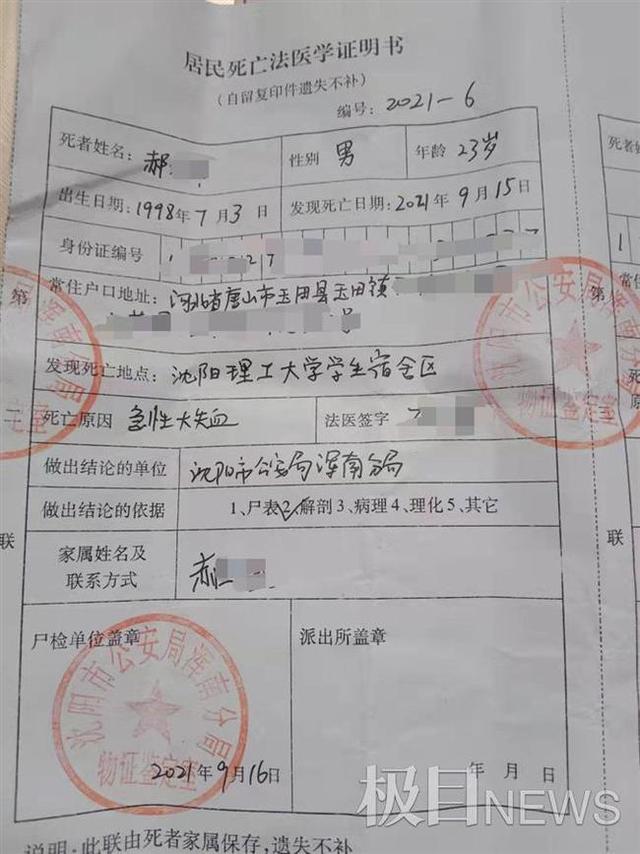 居民死亡法医学证明书
(自留复印件遗失不补)
编号: 2021-6
死者姓名: 郝 性别 男 年龄 23岁
出生日期: 1998年7月3日 发现死亡日期: 2021年9月15日
身份证编号
常住户口地址: 河北省唐山市玉田县玉田镇
号
发现死亡地点: 沈阳理工大学学生宿舍区
死亡原因 急性大失血 法医签字
做出结论的单位 沈阳市公安局浑南分局
做出结论的依据 1、尸表2、解剖3、病理4、理化5、其它
家属姓名及
联系方式
尸检单位盖章 派出所盖章
沈阳市公安局浑南分局
物证鉴定室
2021年9月16日 年 月 日
说明: 此联由死者家属保存,遗失不补
第
二
联
沈阳市公安局浑南分局
物证鉴定室
第
联
极目NEWS